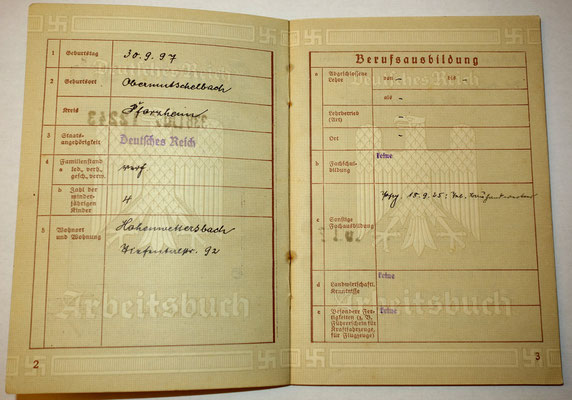 1 Geburtstag
30.9.97
2 Geburtsort
Obermutschelbach
Kreis
Pforzheim
3 Staats-
angehörigkeit
Deutsches Reich
4 Familienstand
a led., verh.,
gesch., verw.
verh
b Zahl der
minder-
jährigen
Kinder
4
5 Wohnort
und Wohnung
Hohenwettersbach
92
Arbeitsbuch
2
Berufsausbildung
a Abgeschlossene
Lehre
von - bis -
als -
Lehrbetrieb
(Art) -
Ort -
b Fachschul-
bildung
Keine
15.9.25:
c Sonstige
Fachausbildung
d Landwirtschaftl.
Kenntnisse
Keine
e Besondere Fer-
tigkeiten (z. B.
Führerschein für
Kraftfahrzeuge,
für Flugzeuge)
Keine
Arbeitsbuch
3